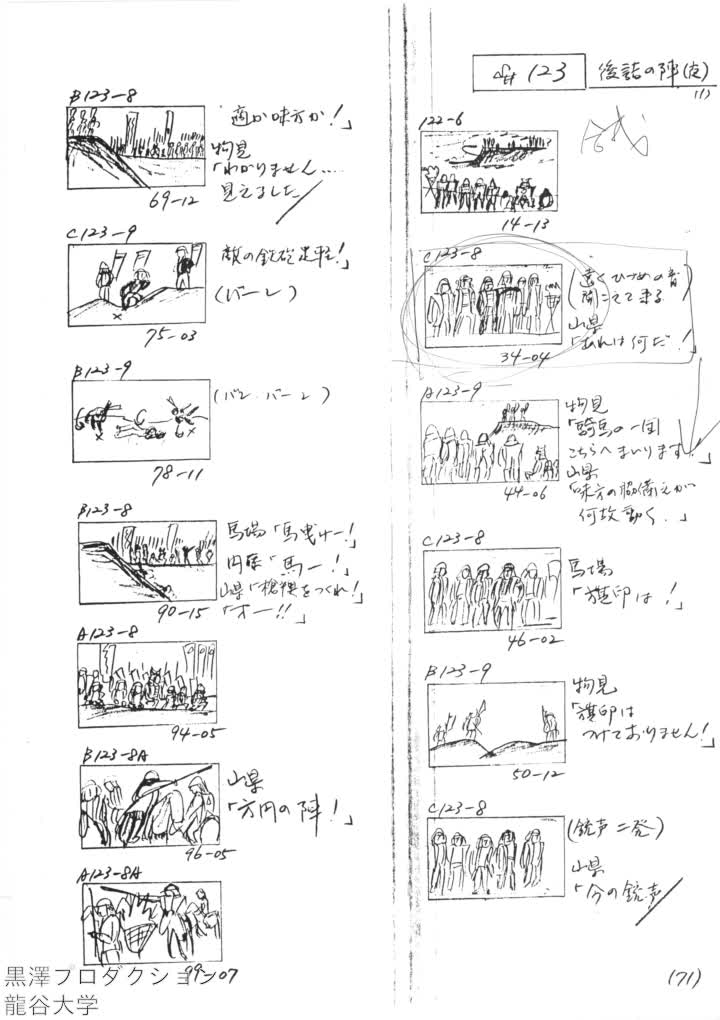 #123
後詰の陣(夜)
(1)
合成
122-6
14-13
C123-8
(遠くひづめの音
聞こえて来る)
山県
「あれは何だ!」
34-04
A123-9
物見
「騎馬の一団
こちらへまいります」
山県
「味方の脇備えが
何故動く.」
44-06
C123-8
馬場
「旗印は!」
46-02
B123-9
物見
「旗印は
つけておりません!」
50-12
C123-8
(銃声二発)
山県
の銃声
(71)
B123-8
敵か味方か!」
物見
「わかりません....
見えました
69-12
C123-9
敵の鉄砲足軽!」
(バーン)
75-03
B123-9
(バン.バーン)
78-11
B123-8
馬場「馬曳けー!」
馬ー!」
山県「槍襖をつくれ!」
「オー!!」
90-15
A123-8
94-05
B123-8A
山県
「方円の陣!」
96-05
A123-8A
99-07
黒澤プロダクション
龍谷大学